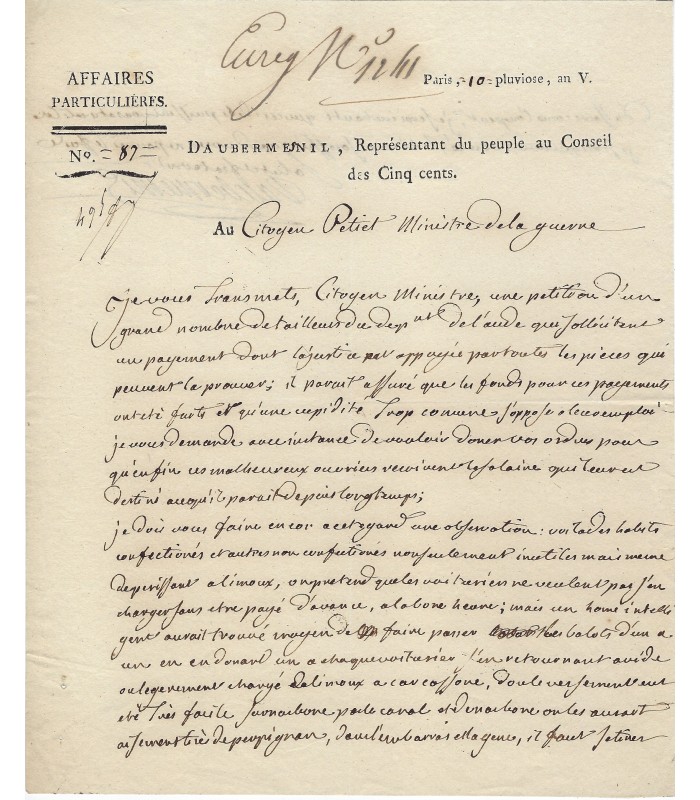 Enreg Nº 1241
AFFAIRES
PARTICULIÈRES.
Paris, 10 pluviose, an V.
Nº. = 87 =
DAUBERMESNIL, Représentant du peuple au Conseil
des Cinq cents.
Au Citoyen Petiet Ministre de la guerre
je vous transmets, Citoyen Ministre, une petition d'un
grand nombre de tailleurs du depnt de l'aude qui sollicitent
un payement dont la justice est appuyée par toutes les pièces qui
peuvent la prouver; il parait assuré que les fonds pour ces payements
ont eté faits et qu'une cupidité trop comune s'oppose a leur emploi
je vous demande avec instance de vouloir doner vos ordres pour
qu'enfin ces malheureux ouvriers recoivent le salaire qui leur est
destiné a ce qu'il parait depuis longtemps;
je dois vous faire encor a cet egard une observation: voila des habits
confectionés et autres non confectionés non seulement inutiles mais meme
deperissant a limoux, on pretend que les voituriers ne veulent pas s'en
charger sans etre payé d'avance, a la bone heure; mais un home intelli
gent aurait trouvé moyen de faire passer les balots d'un a
un en en donant un a chaque voiturier s'en retournant a vide
ou legerement chargé de limoux a carcassone, d'ou le versement eut
eté très facile sur narbone par le canal et de narbone on les aurait
aisement tirés de perpignan, dans l'embarras et la gene, il faut